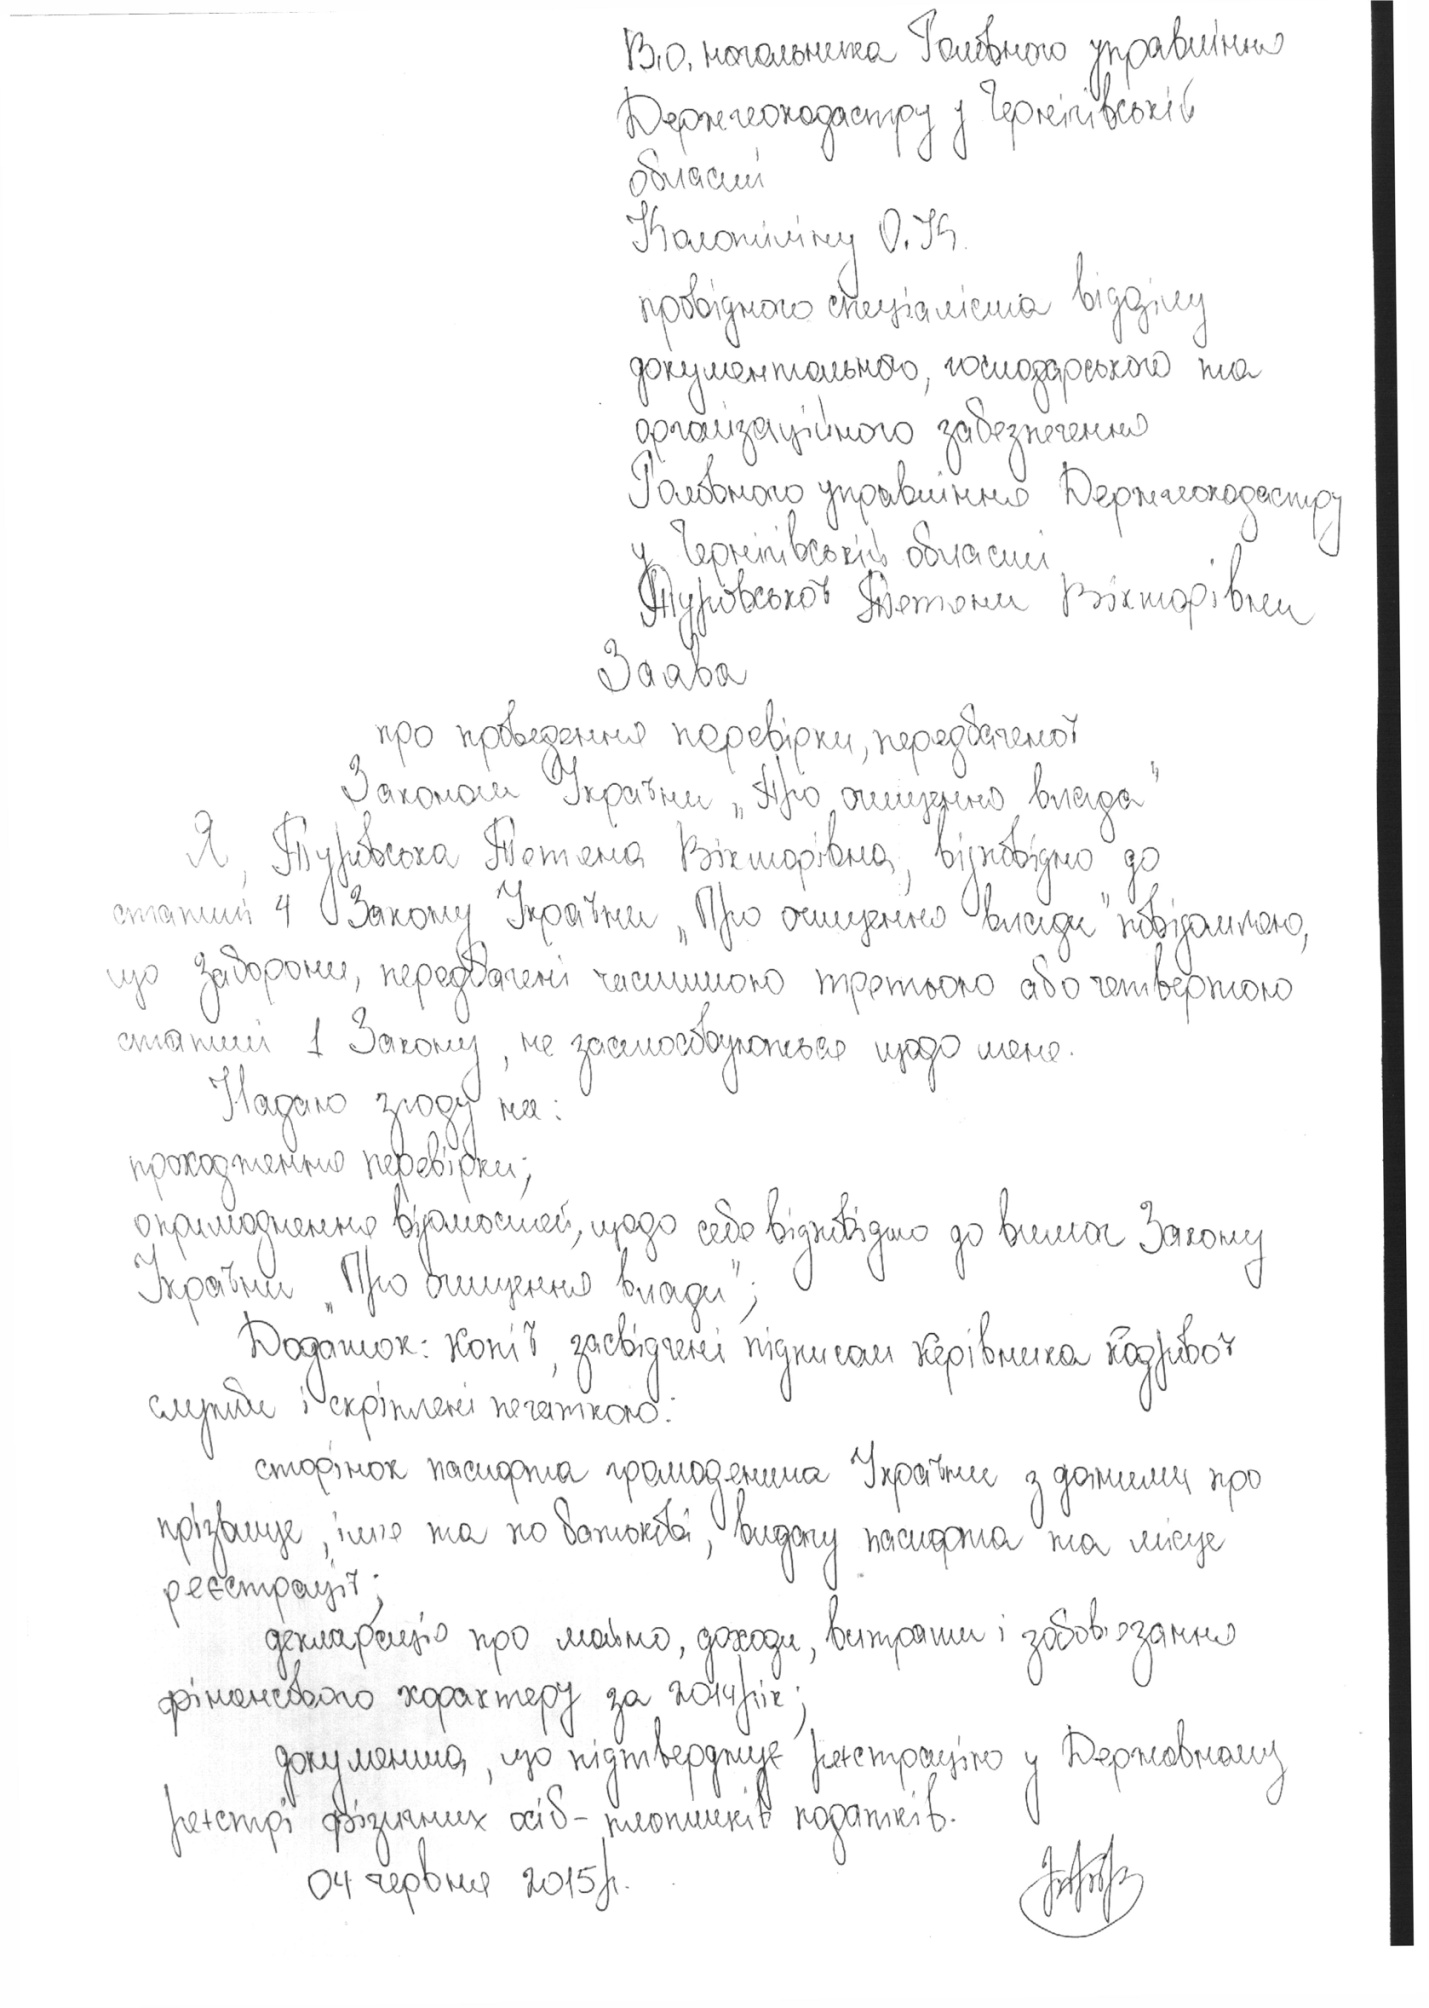 В.о. начальника Головного управління
Держгеокадастру у Чернігівській
області
Калотіліну О.К.
провідного спеціаліста відділу
документального, господарського та
організаційного забезпечення
Головного управління Держгеокадастру
у Чернігівській області
Туровської Тетяни Вікторівни
Заява
про проведення перевірки, передбаченої
Законом України „Про очищення влади"
Я, Туровська Тетяна Вікторівна, відповідно до
статті 4 Закону України „Про очищення влади" повідомляю,
що заборони, передбачені частиною третьою або четвертою
статті 1 Закону, не застосовуються щодо мене.
Надаю згоду на:
проходження перевірки;
оприлюднення відомостей, щодо себе відповідно до вимог Закону
України „Про очищення влади";
Додаток: копії, засвідчені підписом керівника кадрової
служби і скріплені печаткою:
сторінок паспорта громадянина України з даними про
прізвище, ім'я та по батькові, видачу паспорта та місце
реєстрації;
декларація про майно, доходи, витрати і зобов'язання
фінансового характеру за 2014 рік;
документа, що підтверджує реєстрацію у Державному
реєстрі фізичних осіб - платників податків.
04 червня 2015 р.